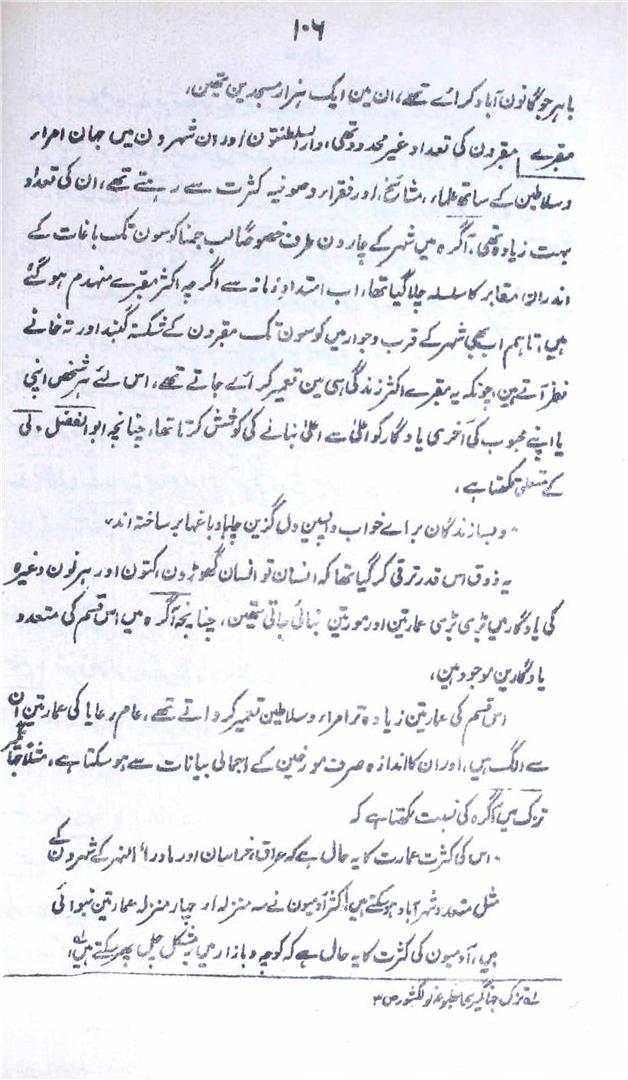 ۱۰۶
باہر جو گانون آباد کرائے تھے، ان مین ایک ہزار مسجدین تھین،
مقبرے مقبرون کی تعداد غیر محدود تھی، دارالسلطنتون اور ان شہرون میں جہان امرار
وسلاطین کے ساتھ علماء، مشائخ، اور فقرار وصوفیہ کثرت سے رہتے تھے، ان کی تعداد
بہت زیادہ تھی، آگرہ میں شہر کے چارون طرف خصوصًا لب جمنا کوسون تک باغات کے
اندر ان مقابر کا سلسلہ چلا گیا تھا، اب امتداد زمانہ سے اگرچہ اکثر مقبرے منہدم ہو گئے
ہیں، تاہم اب بھی شہر کے قرب وجوار میں کوسون تک مقبرون کے شکستہ گنبد اور تہ خانے
نظر آتے ہین، چونکہ یہ مقبرے اکثر زندگی ہی مین تعمیر کرائے جاتے تھے، اس لئے ہر شخص اپنی
یا اپنے محبوب کی آخری یادگار کو اعلیٰ سے اعلیٰ بنانے کی کوشش کرتا تھا، چنانچہ ابوالفضل دلی
کے متعلق لکھتا ہے،
"وبسا زندگان براے خواب واپسین دل گزین جاہا وباغہا برساختہ اند"
یہ ذوق اس قدر ترقی کر گیا تھا کہ انسان تو انسان گھوڑون، کتون اور ہرنون وغیرہ
کی یادگار میں بڑی بڑی عمارتین اور مورتین بنائی جاتی تھین، چنانچہ آگرہ میں اس قسم کی متعدد
یادگارین موجود ہین،
اس قسم کی عمارتین زیادہ تر امراء وسلاطین تعمیر کرواتے تھے، عام رعایا کی عمارتین ان
سے الگ ہیں، اور ان کا اندازہ صرف مورخین کے اجمالی بیانات سے ہو سکتا ہے، مثلاً جہانگیر
تزک میں آگرہ کی نسبت لکھتا ہے کہ
"اس کی کثرت عمارت کا یہ حال ہے کہ عراق، خراسان اور ماوراء النہر کے شہرون کے
مثل متعدد شہر آباد ہو سکتے ہیں، اکثر آدمیون نے سہ منزلہ اور چہار منزلہ عمارتین بنوائی
ہیں، آدمیون کی کثرت کا یہ حال ہے کہ کوچہ وبازار میں بہ مشکل چل پھر سکتے ہیں"
لہ تزک جہانگیری مطبوعہ نولکشور ص ۳